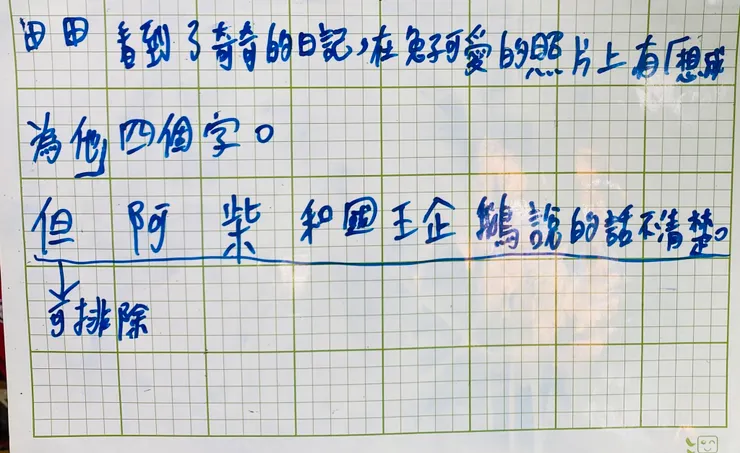 田田看到了奇奇的日記，在兔子可愛的照片上有「想成
為他」四個字。
但阿柴和國王企鵝說的話不清楚。
可排除